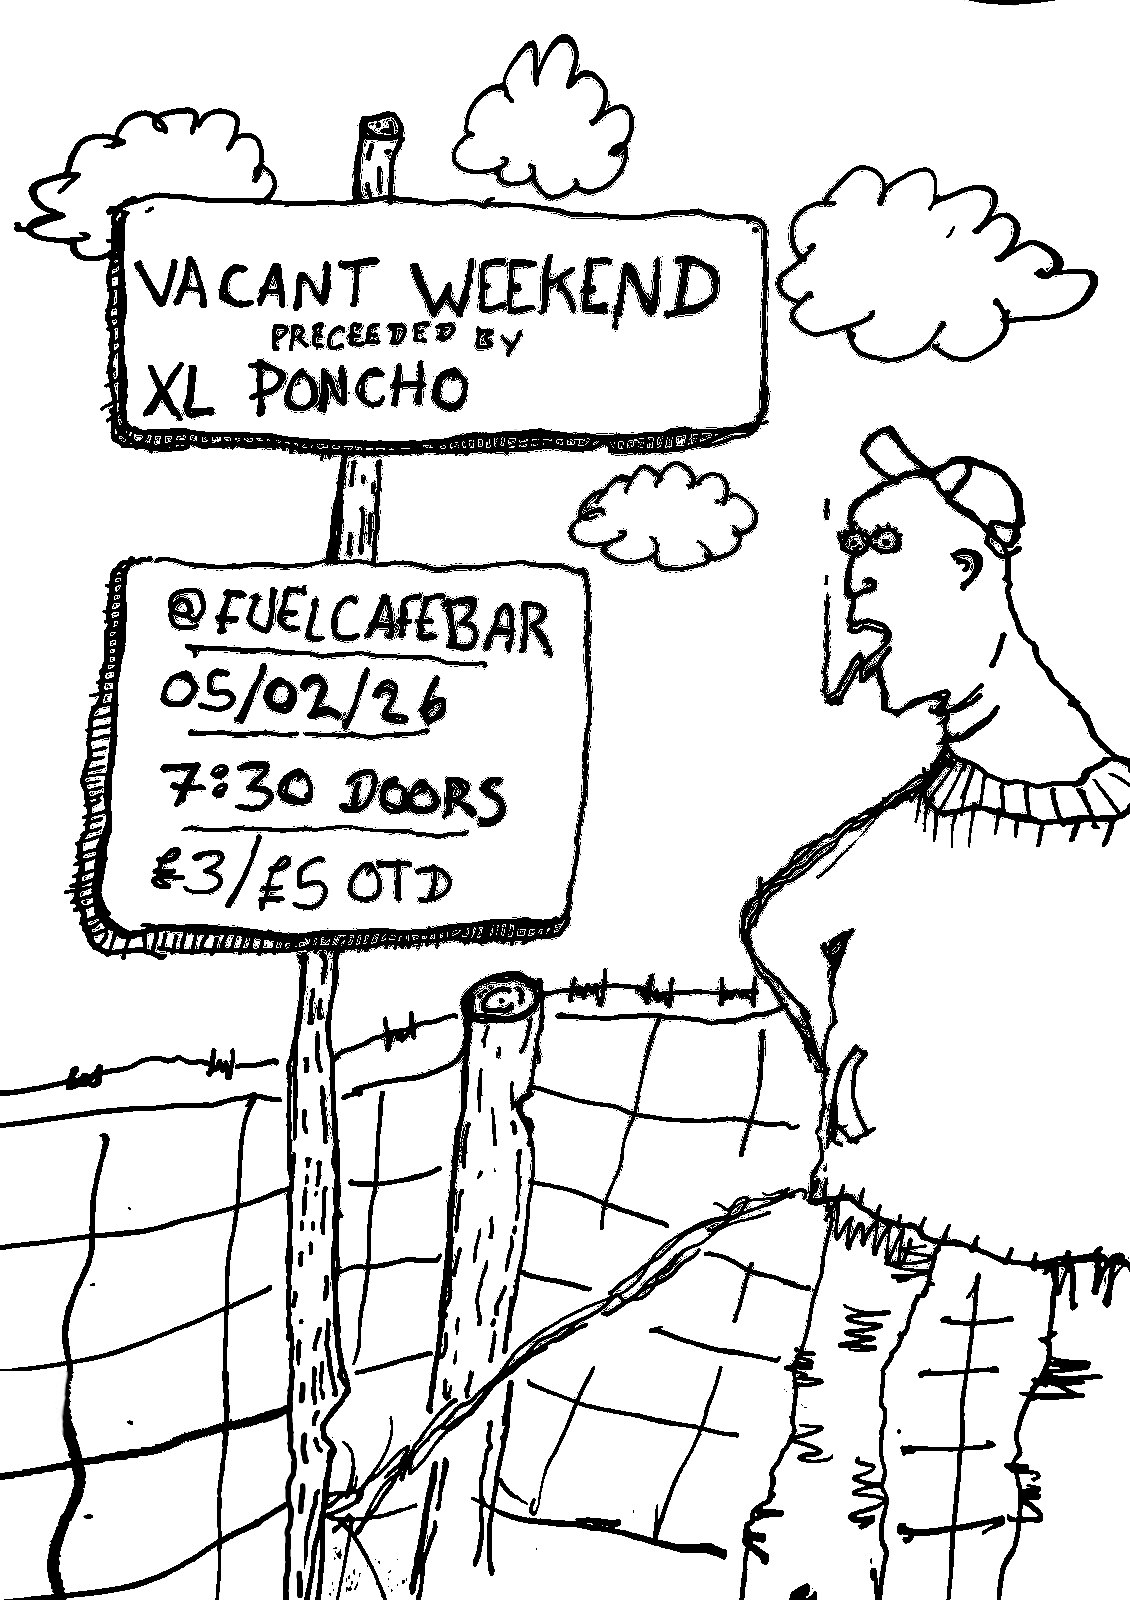 VACANT WEEKEND
PRECEEDED BY
XL PONCHO
@FUELCAFEBAR
05/02/26
7:30 DOORS
£3/£5 OTD